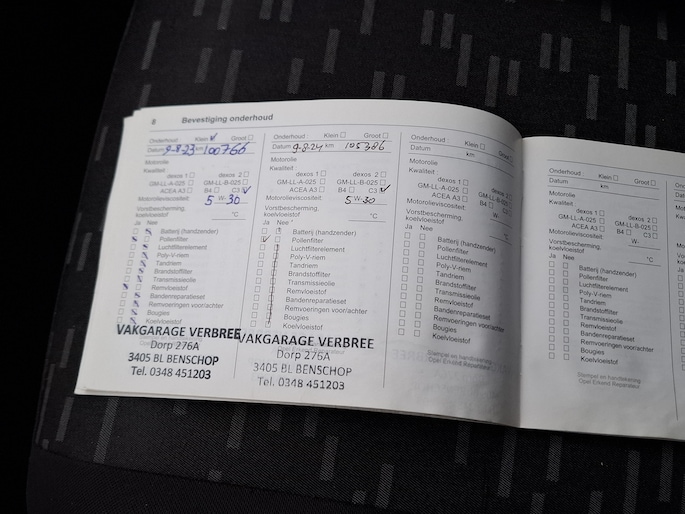 8 Bevestiging onderhoud
Onderhoud : Klein Groot
Datum 9-8-23 km 100766
Motorolie
Kwaliteit
dexos 1 dexos 2
GM-LL-A-025 GM-LL-B-025
ACEA A3 B4 C3
Motorolieviscositeit: 5 W- 30
Vorstbescherming, koelvloeistof °C
Ja Nee
Batterij (handzender)
Pollenfilter
Luchtfilterelement
Poly-V-riem
Tandriem
Brandstoffilter
Transmissieolie
Remvloeistof
Bandenreparatieset
Remvoeringen voor/achter
Bougies
Koelvloeistof
VAKGARAGE VERBREE
Dorp 276A
3405 BL BENSCHOP
Tel. 0348 451203
Onderhoud : Klein Groot
Datum 9-8-24 km 105386
Motorolie
Kwaliteit
dexos 1 dexos 2
GM-LL-A-025 GM-LL-B-025
ACEA A3 B4 C3
Motorolieviscositeit: 5 W- 30
Vorstbescherming, koelvloeistof °C
Ja Nee
Batterij (handzender)
Pollenfilter
Luchtfilterelement
Poly-V-riem
Tandriem
Brandstoffilter
Transmissieolie
Remvloeistof
Bandenreparatieset
Remvoeringen voor/achter
Bougies
Koelvloeistof
VAKGARAGE VERBREE
Dorp 276A
3405 BL BENSCHOP
Tel. 0348 451203
Onderhoud : Klein Groot
Datum km
Motorolie
Kwaliteit
dexos 1 dexos 2
GM-LL-A-025 GM-LL-B-025
ACEA A3 B4 C3
Motorolieviscositeit: W-
Vorstbescherming, koelvloeistof °C
Ja Nee
Batterij (handzender)
Pollenfilter
Luchtfilterelement
Poly-V-riem
Tandriem
Brandstoffilter
Transmissieolie
Remvloeistof
Bandenreparatieset
Remvoeringen voor/achter
Bougies
Koelvloeistof
Stempel en handtekening
Opel Erkend Reparateur
Onderhoud : Klein Groot
Datum km
Motorolie
Kwaliteit
dexos 1 dexos 2
GM-LL-A-025 GM-LL-B-025
ACEA A3 B4 C3
Motorolieviscositeit: W-
Vorstbescherming, koelvloeistof °C
Ja Nee
Batterij (handzender)
Pollenfilter
Luchtfilterelement
Poly-V-riem
Tandriem
Brandstoffilter
Transmissieolie
Remvloeistof
Bandenreparatieset
Remvoeringen voor/achter
Bougies
Koelvloeistof
Stempel en handtekening
Opel Erkend Reparateur